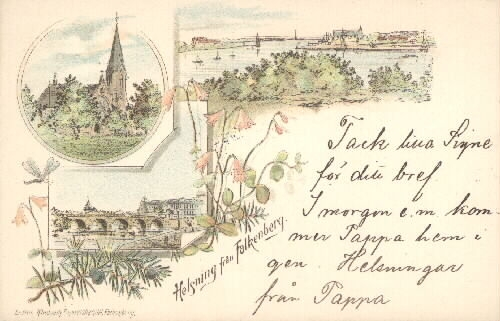 Tack lilla Signe
för ditt bref
I morgon e.m kom-
mer Pappa hem i
gen. Helsningar
från Pappa
Helsning från Falkenberg.